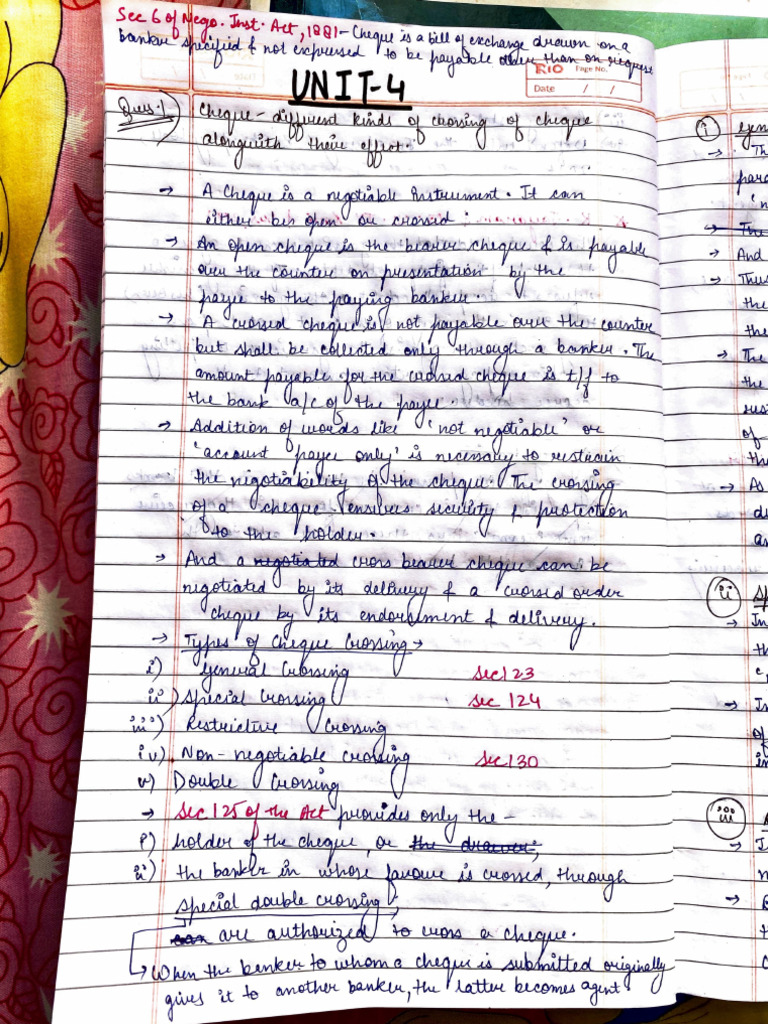 Sec 6 of Nego. Inst. Act, 1881 - Cheque is a bill of exchange drawn on a
banker specified & not expressed to be payable other than on request
RIO Page No.
Date / /
UNIT-4
Ques:1) Cheque - different kinds of crossing of cheque
alongwith their effect.
→ A Cheque is a negotiable instrument. It can
either be open or crossed.
→ An open cheque is the bearer cheque & is payable
over the counter on presentation by the
payee to the paying banker.
→ A crossed cheque is not payable over the counter
but shall be collected only through a banker. The
amount payable for the crossed cheque is t/f to
the bank a/c of the payee.
→ Addition of words like 'not negotiable' or
'account payee only' is necessary to restrain
the negotiability of the cheque. The crossing
of a cheque ensures security & protection
to the holder.
→ And a negotiated cross bearer cheque can be
negotiated by its delivery & a crossed order
cheque by its endorsement & delivery.
→ Types of Cheque Crossing →
i) General Crossing Sec 123
ii) Special Crossing Sec 124
iii) Restrictive Crossing
iv) Non-negotiable crossing Sec 130
v) Double Crossing
→ Sec 125 of the Act provides only the -
i) holder of the cheque, or the drawer;
ii) the banker in whose favour is crossed, through
special double crossing;
are authorized to cross a cheque.
→ When the banker to whom a cheque is submitted originally
gives it to another banker, the latter becomes agent
i
→ Th
'n
→ And
→ Thus
the
the
→ The
the
of
the
→ As
ii
→ In
th
→ In
of
in
iii